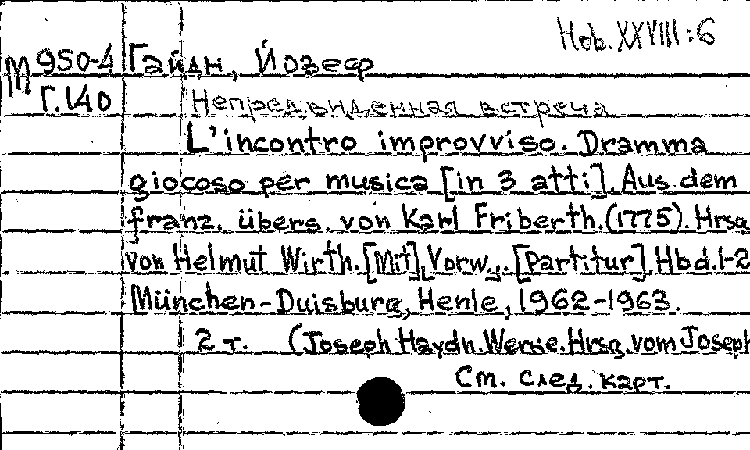 Hob. XXVIII:6
М 950-4 Гайдн, Йозеф
Г.140 Непредвиденная встреча
L'incontro improvviso. Dramma
giocoso per musica [in 3 atti]. Aus dem
franz. übers. von Karl Friberth. (1775). Hrsg.
von Helmut Wirth. [Mit] Vorw. [Partitur]. Hbd. 1-2
München-Duisburg, Henle, 1962-1963.
2 т. (Joseph Haydn. Werke. Hrsg. vom Joseph
См. след. карт.